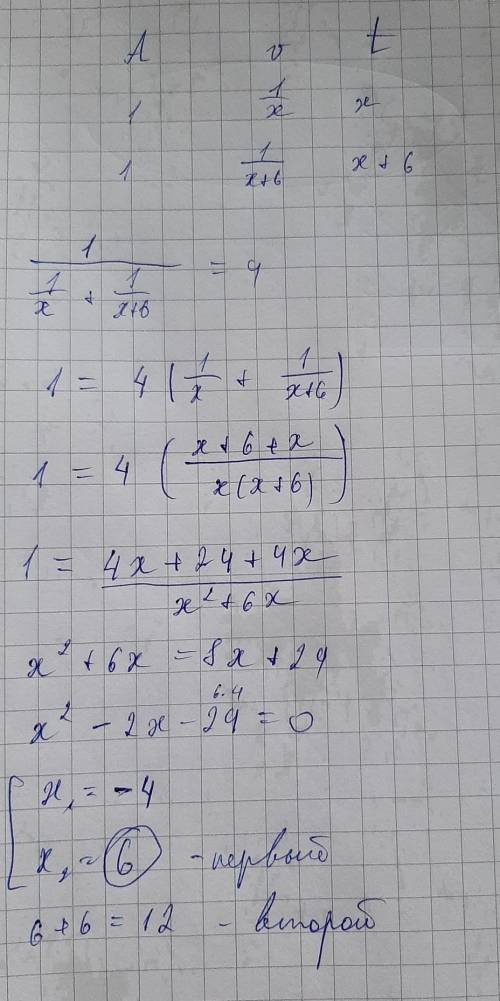 A v t
1 1/x x
1 1/(x+6) x+6
1/(1/x + 1/(x+6)) = 4
1 = 4 (1/x + 1/(x+6))
1 = 4 ((x+6+x)/(x(x+6)))
1 = (4x+24+4x)/(x²+6x)
x² + 6x = 8x + 24
6·4
x² - 2x - 24 = 0
[ x₁ = -4
x₂ = 6 - первый
6 + 6 = 12 - второй